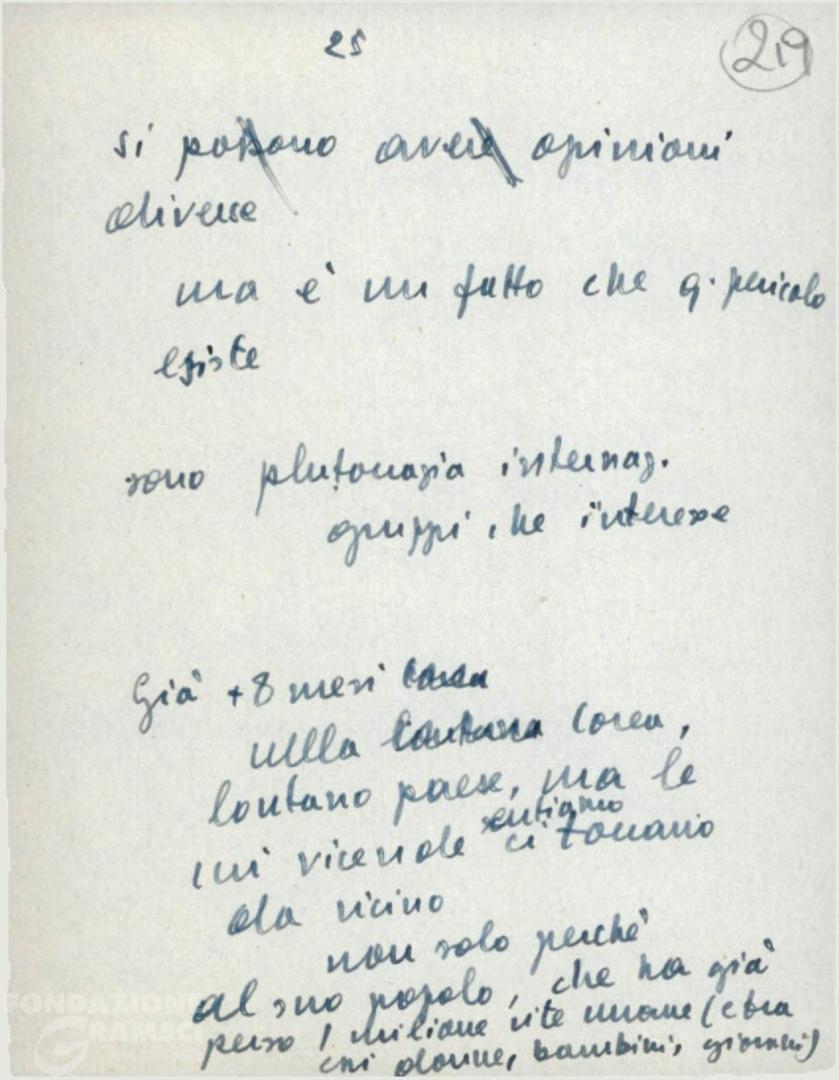 25
219
si possono avere opinioni
diverse
ma è un fatto che q. pericolo
esiste
sono plutocrazia internaz.
gruppi che interesse
Già + 8 mesi Corea
nella lontana Corea,
lontano paese, ma le
sentiamo
cui vicende ci toccano
da vicino
non solo perché
al suo popolo, che ha già
perso 1 milione vite umane (c tra
cui donne, bambini, giovani)
FONDAZIONE
GRAMSCI